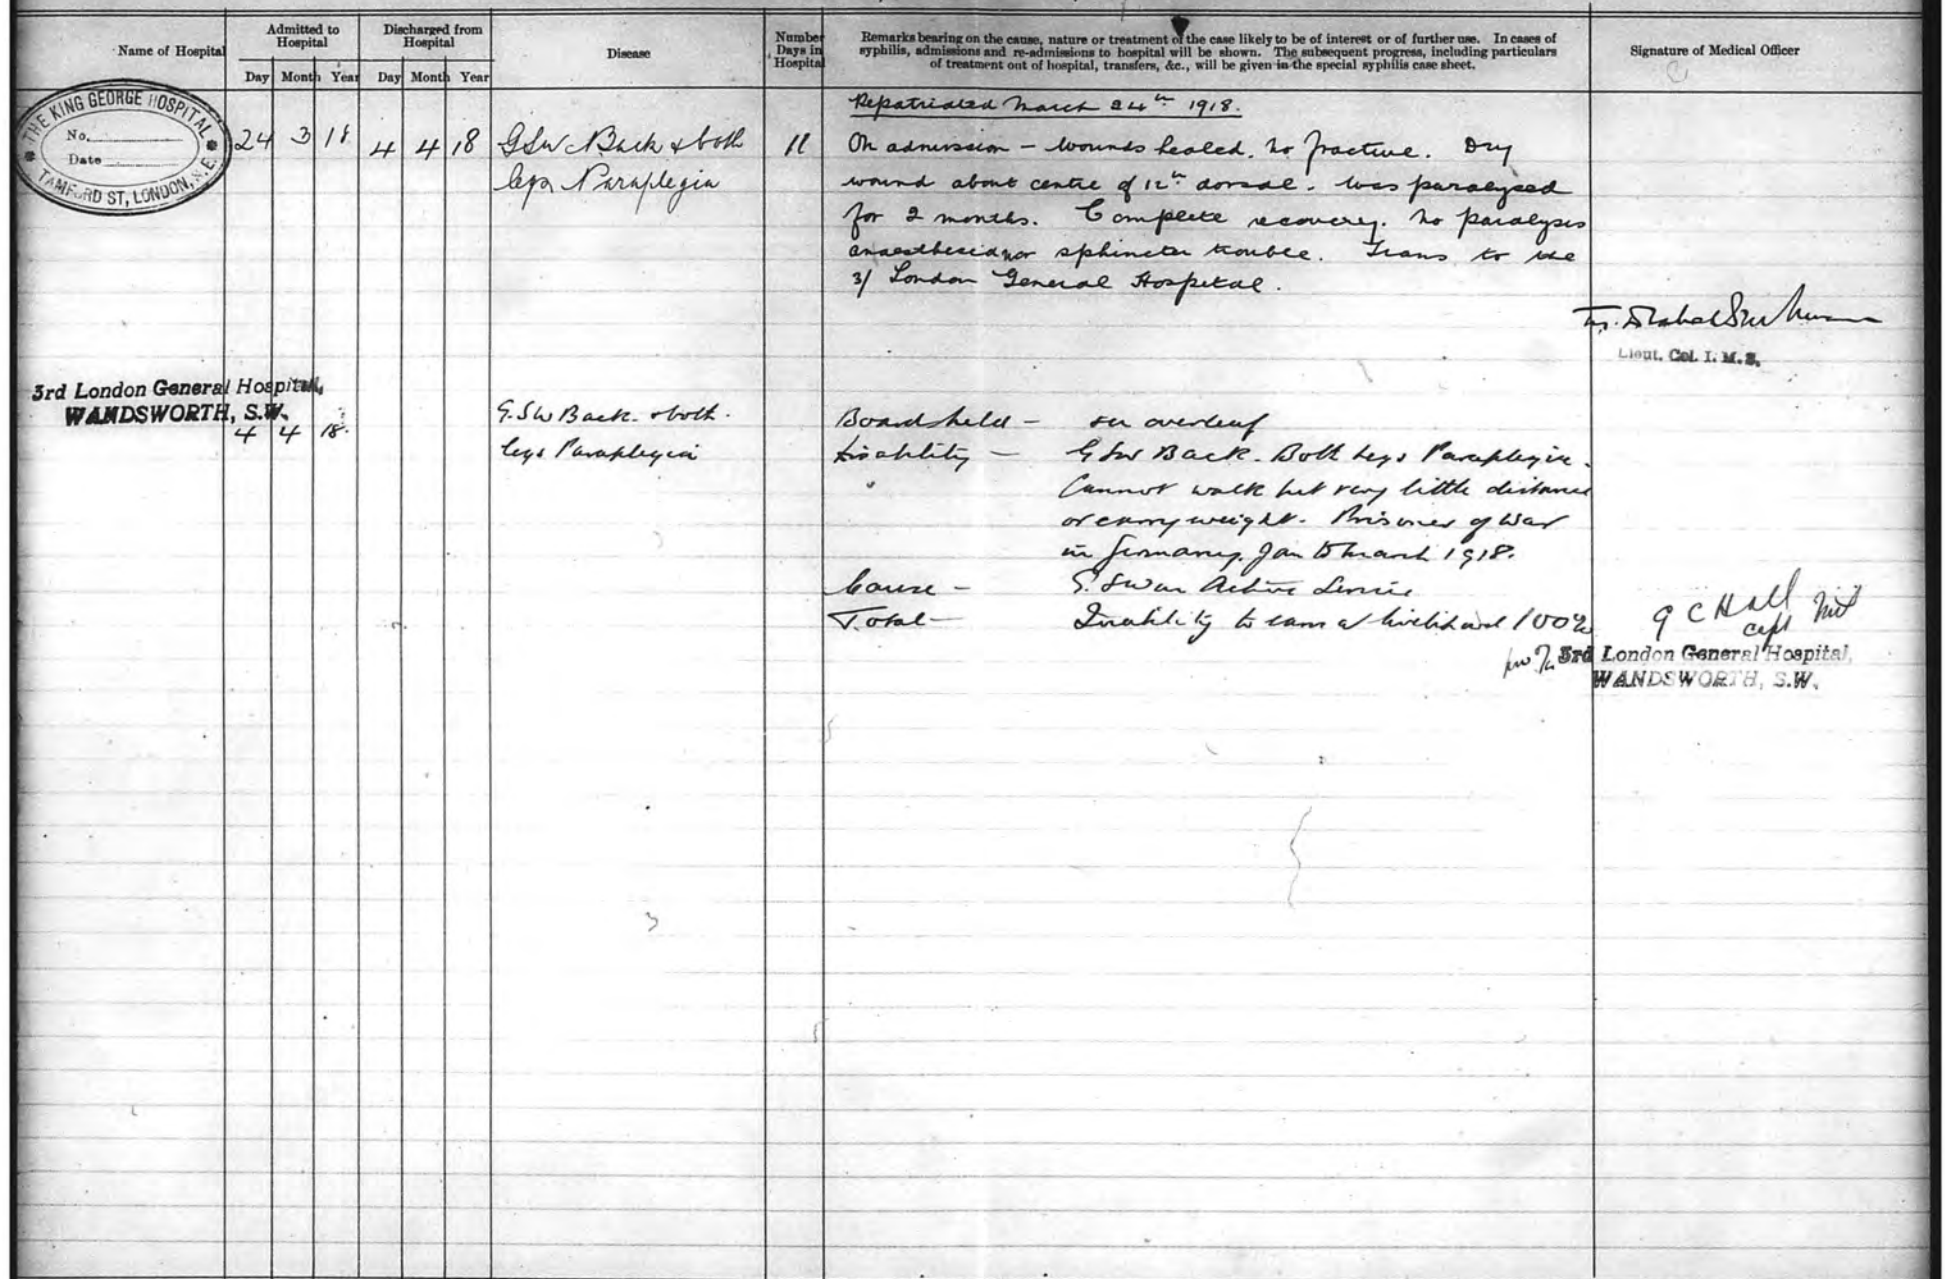 Name of Hospital
Admitted to Hospital
Discharged from Hospital
Disease
Number Days in Hospital
Remarks bearing on the cause, nature or treatment of the case likely to be of interest or of further use. In cases of
syphilis, admissions and re-admissions to hospital will be shown. The subsequent progress, including particulars
of treatment out of hospital, transfers, &c., will be given in the special syphilis case sheet.
Signature of Medical Officer
Day Month Year Day Month Year
THE KING GEORGE HOSPITAL
No.
Date
TAMFORD ST, LONDON, S.E.
Repatriated March 24th 1918.
24 3 18 4 4 18 GSW Back & both 11 On admission - wounds healed. No fracture. Dry
legs Paraplegia wound about centre of 12th dorsal. Was paralysed
for 2 months. Complete recovery. No paralysis
anaesthesia nor sphincter trouble. Trans to the
3/ London General Hospital.
Lieut. Col. I. M. S.
3rd London General Hospital,
WANDSWORTH, S.W.
4 4 18. G.S.W Back. & both. Board held - see overleaf
legs Paraplegia Disability - GSW Back. Both legs Paraplegia.
Cannot walk but very little distance
or carry weight. Prisoner of War
in Germany. Jan to March 1918.
Cause - G.S.W on Active Service
Total - Inability to earn a livelihood 100%
G C Hall
Capt
3rd London General Hospital,
WANDSWORTH, S.W.